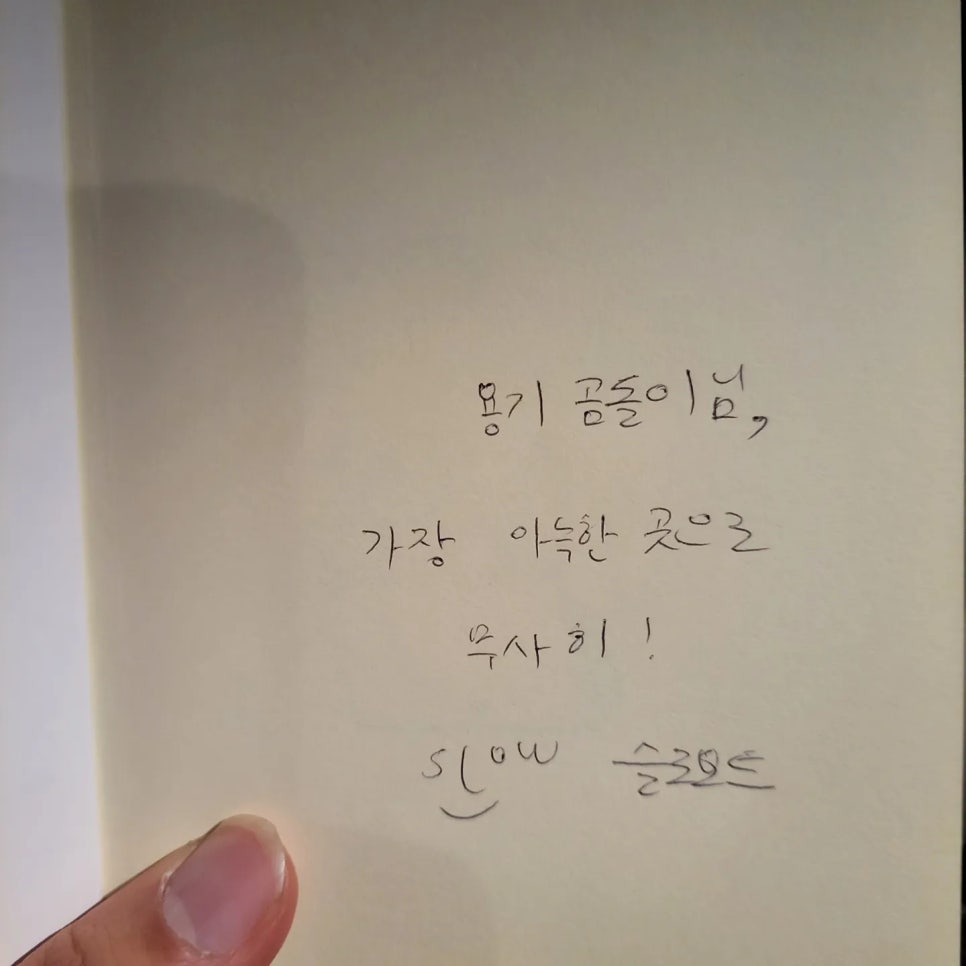 용기 곰돌이님,
가장 아늑한 곳으로
무사히!
slow 슬로우드